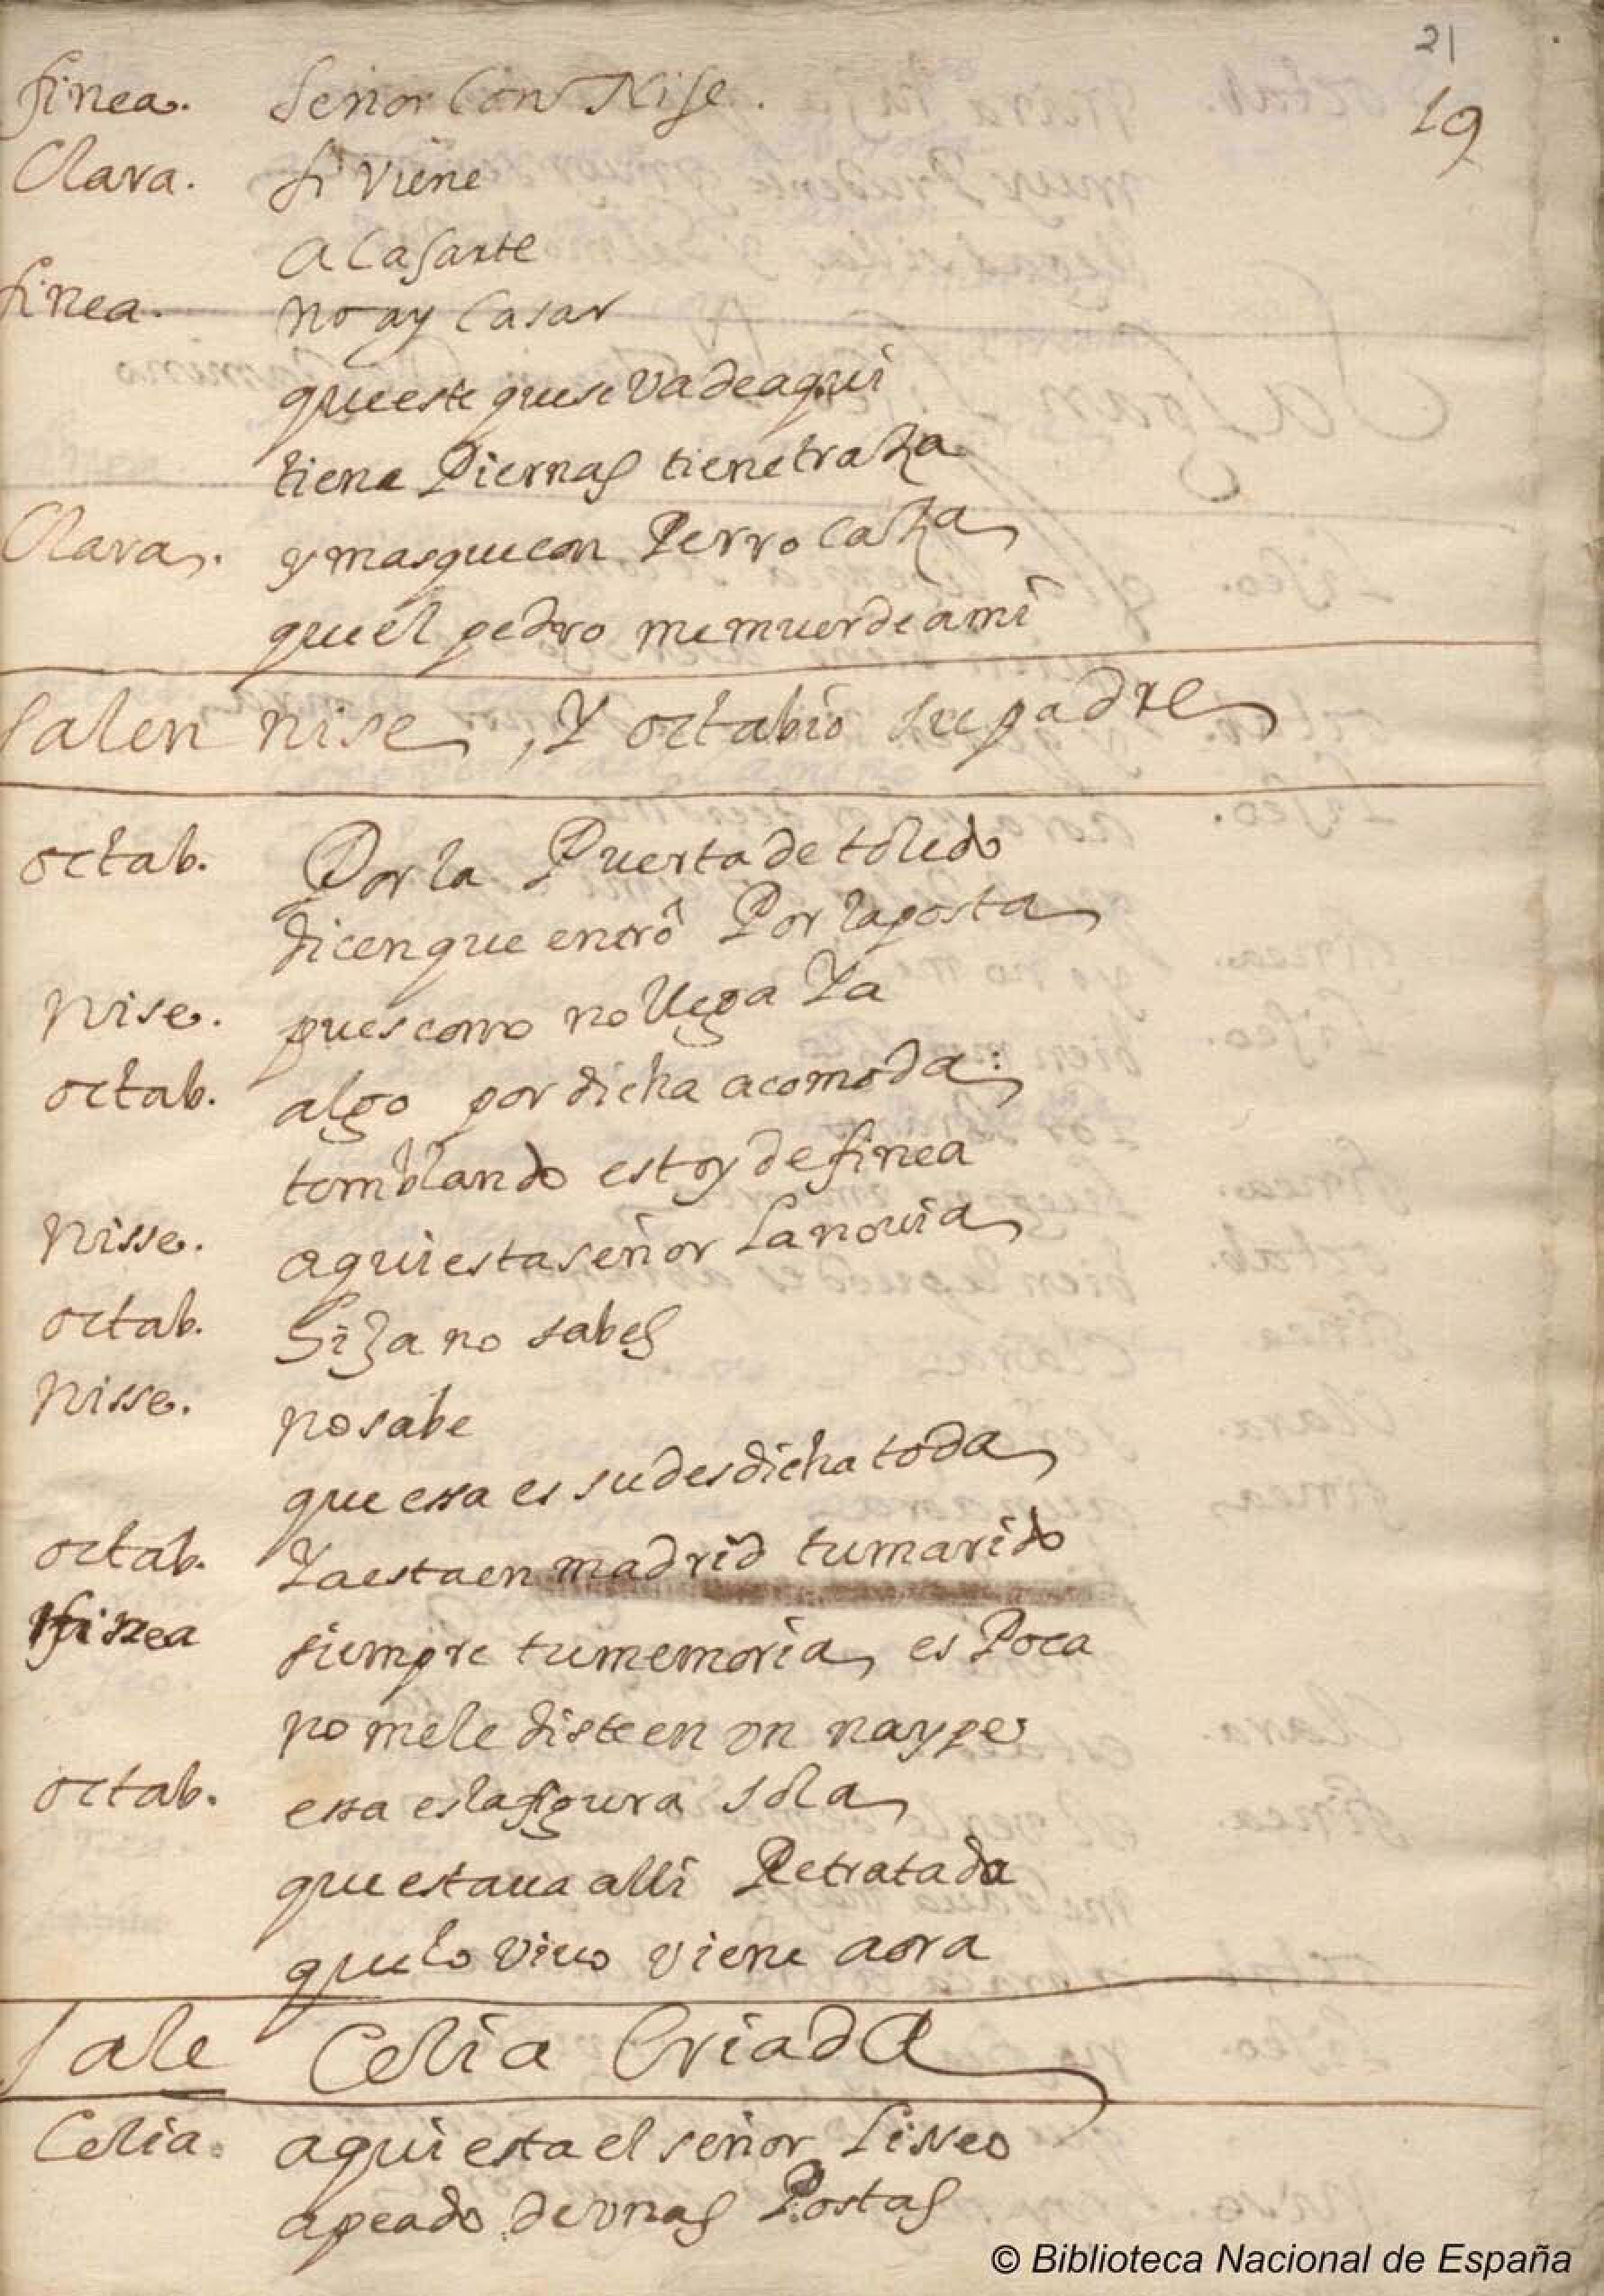 21
19
finea. señor Con Nise.
Clara. si viene
a Casarte
finea. no ay Casar
queeste quese va deaqui
tiene Piernas tienetraza
Clara. y masquecon Perro caza
quel pedro memuerdeami
salen nise, Y octabio su padre
octab. Por la Puerta de toledo
dicenque entrô Por laposta
Nise. puescomo no llega Ya
octab. algo por dicha acomoda:
temblando estoy de finea
Nisse. aqui esta señor La novia
octab. hija no sabes
Nisse. no sabe
que essa es su desdicha toda
octab. Ya esta en madrid tu marido
finea siempre tu memoria es Poca
no mele diste en vn naype
octab. essa es la figura sola
que estaua alli Retratada
quelo viuo viene aora
Sale Celia Criada
Celia. aqui esta el señor Liseo
apeado de vnas Postas
© Biblioteca Nacional de España